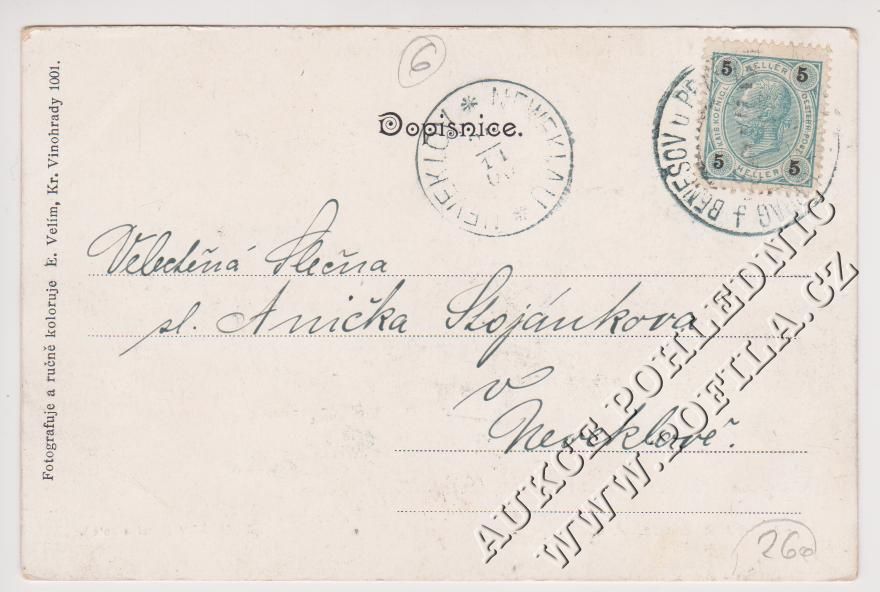 Fotografuje a ručně koloruje E. Velím, Kr. Vinohrady 1001.
6
Dopisnice.
NEWEKLAU * NEVEKLOV *
11
BENEŠOV U
5 HELLER 5
KAIS. KOENIGL. OESTERR. POST
5 HELLER 5
Velectěná Slečna
sl. Anička Stojánkova
v
Neveklově.
AUKCE POHLEDNIC
WWW.POFILA.CZ
260